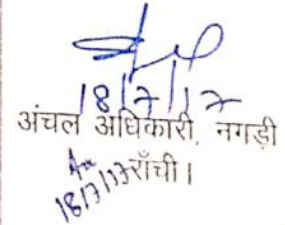 18/7/17
अंचल अधिकारी, नगड़ी
राँची।
18/7/17